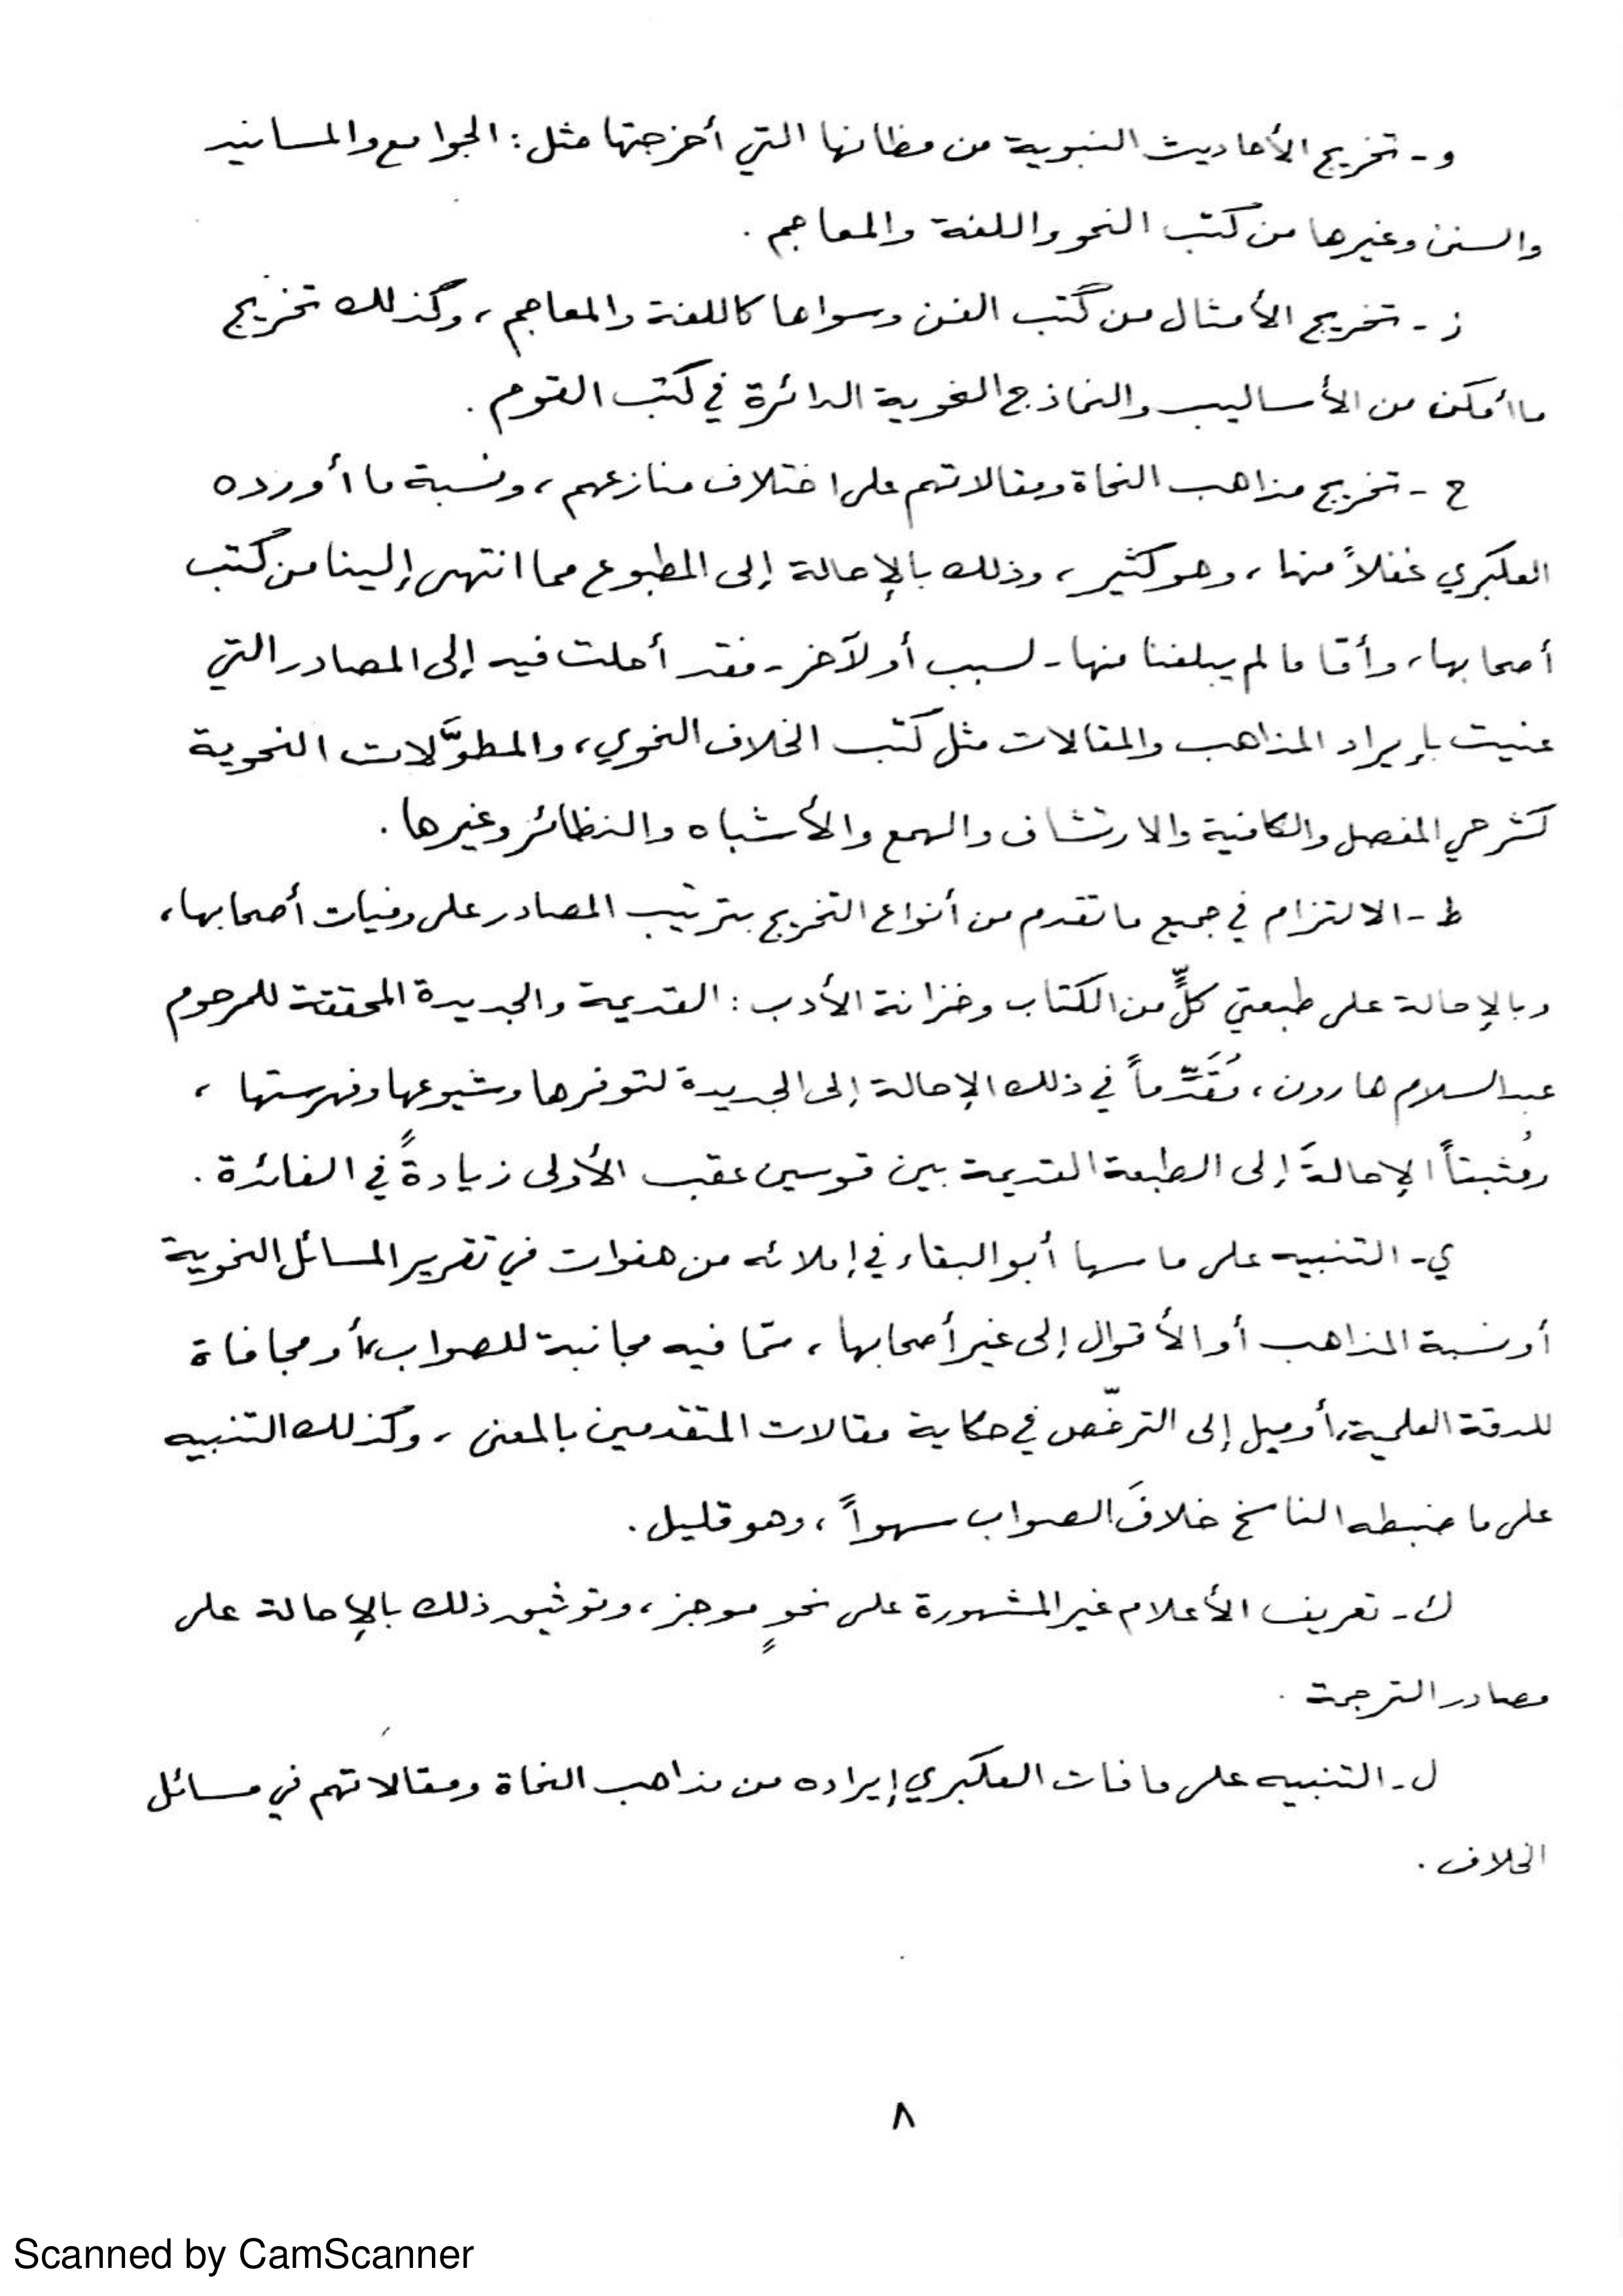 و - تخريج الأحاديث النبوية من مظانها التي أخرجتها مثل : الجوامع والمسانيد
والسنن وغيرها من كتب النحو واللغة والمعاجم .
ز - تخريج الأمثال من كتب الفن وسواها كاللغة والمعاجم ، وكذلك تخريج
ما أمكن من الأساليب والنماذج النحوية الدائرة في كتب القوم .
ح - تخريج مذاهب النحاة ومقالاتهم على اختلاف منازعهم ، ونسبة ما أورده
العكبري غفلاً منها ، وهو كثير ، وذلك بالإحالة إلى المطبوع مما انتهى إلينا من كتب
أصحابها ، وأمّا ما لم يبلغنا منها - لسبب أو لآخر - فقد أحلت فيه إلى المصادر التي
عنيت بإيراد المذاهب والمقالات مثل كتب الخلاف النحوي ، والمطوَّلات النحوية
كشرحي المفصل والكافية والارتشاف والهمع والأشباه والنظائر وغيرها .
ط - الالتزام في جميع ما تقدم من أنواع التخريج بترتيب المصادر على وفيات أصحابها ،
وبالإحالة على طبعتي كلٍّ من الكتاب وخزانة الأدب : القديمة والجديدة المحققة للمرحوم
عبد السلام هارون ، مُقَدِّماً في ذلك الإحالة إلى الجديدة لتوفرها وشيوعها وفهرستها ،
ومُثبتاً الإحالةَ إلى الطبعة القديمة بين قوسين عقب الأولى زيادةً في الفائدة .
ي - التنبيه على ما سها أبو البقاء في إملائه من هفوات في تقرير المسائل النحوية
أو نسبة المذاهب أو الأقوال إلى غير أصحابها ، ممّا فيه مجانبة للصواب ، أو مجافاة
للدقة العلمية ، أو ميل إلى الترخّص في حكاية مقالات المتقدمين بالمعنى ، وكذلك التنبيه
على ما ضبطه الناسخ خلافَ الصواب سهواً ، وهو قليل .
ك - تعريف الأعلام غير المشهورة على نحوٍ موجز ، وتوثيق ذلك بالإحالة على
مصادر الترجمة .
ل - التنبيه على ما فات العكبري إيراده من مذاهب النحاة ومقالاتهم في مسائل
الخلاف .
٨
Scanned by CamScanner